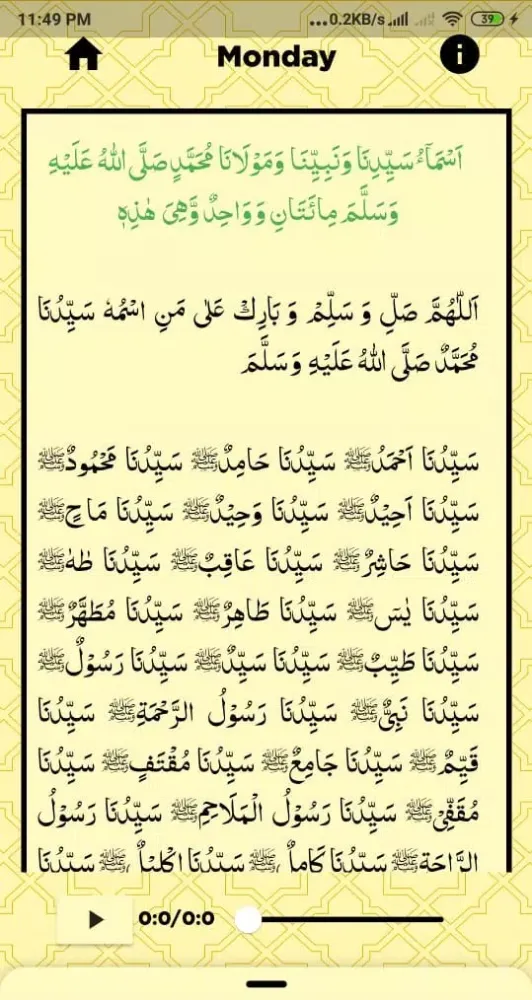 11:49 PM ...0.2KB/s 39
Monday
اَسْمَآءُ سَيِّدِنَا وَنَبِيِّنَا وَمَوْلَانَا مُحَمَّدٍ صَلَّى اللّٰهُ عَلَيْهِ
وَسَلَّمَ مِائَتَانِ وَوَاحِدٌ وَّهِىَ هٰذِهٖ
اَللّٰهُمَّ صَلِّ وَ سَلِّمْ وَ بَارِكْ عَلٰى مَنِ اسْمُهٗ سَيِّدُنَا
مُحَمَّدٌ صَلَّى اللّٰهُ عَلَيْهِ وَسَلَّمَ
سَيِّدُنَا اَحْمَدُﷺ سَيِّدُنَا حَامِدٌﷺ سَيِّدُنَا مَحْمُودٌﷺ
سَيِّدُنَا اَحِيْدٌﷺ سَيِّدُنَا وَحِيْدٌﷺ سَيِّدُنَا مَاحٍﷺ
سَيِّدُنَا حَاشِرٌﷺ سَيِّدُنَا عَاقِبٌﷺ سَيِّدُنَا طٰهٰﷺ
سَيِّدُنَا يٰسٓﷺ سَيِّدُنَا طَاهِرٌﷺ سَيِّدُنَا مُطَهَّرٌﷺ
سَيِّدُنَا طَيِّبٌﷺ سَيِّدُنَا سَيِّدٌﷺ سَيِّدُنَا رَسُوْلٌﷺ
سَيِّدُنَا نَبِىٌّﷺ سَيِّدُنَا رَسُوْلُ الرَّحْمَةِﷺ سَيِّدُنَا
قَيِّمٌﷺ سَيِّدُنَا جَامِعٌﷺ سَيِّدُنَا مُقْتَفٍﷺ سَيِّدُنَا
مُقَفِّىْﷺ سَيِّدُنَا رَسُوْلُ الْمَلَاحِمِﷺ سَيِّدُنَا رَسُوْلُ
الرَّاحَةِﷺ سَيِّدُنَا كَامِلٌﷺ سَيِّدُنَا اِكْلِيْلٌﷺ سَيِّدُنَا
0:0/0:0